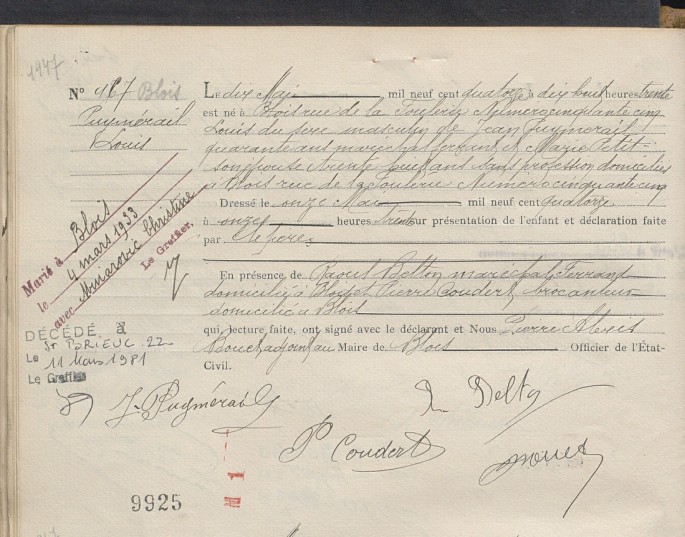 1947
N° 167 Blois
Puymérail
Louis
Le dix Mai mil neuf cent quatorze à dix huit heures trente
est né à Blois rue de la Foulerie Numéro cinquante cinq
Louis du sexe masculin de Jean Puymérail
quarante ans maréchal ferrant et Marie Petit
son épouse trente huit ans sans profession domiciliés
à Blois rue de la Foulerie Numéro cinquante cinq
Dressé le onze Mai mil neuf cent quatorze
à onze heures trente sur présentation de l'enfant et déclaration faite
par le père
En présence de Raoul Delton maréchal Ferrand
domicilié à Blois et Pierre Coudert, brocanteur
domicilié à Blois
qui, lecture faite, ont signé avec le déclarant et Nous Pierre Alexis
adjoint au Maire de Blois Officier de l'État-
Civil.
Marié à Blois
le 4 mars 1933
avec Christine
Le Greffier,
DÉCÉDÉ à
St BRIEUC 22
Le 11 Mars 1981
Le Greffier
J. Puymérail
R Delton
P Coudert
9925